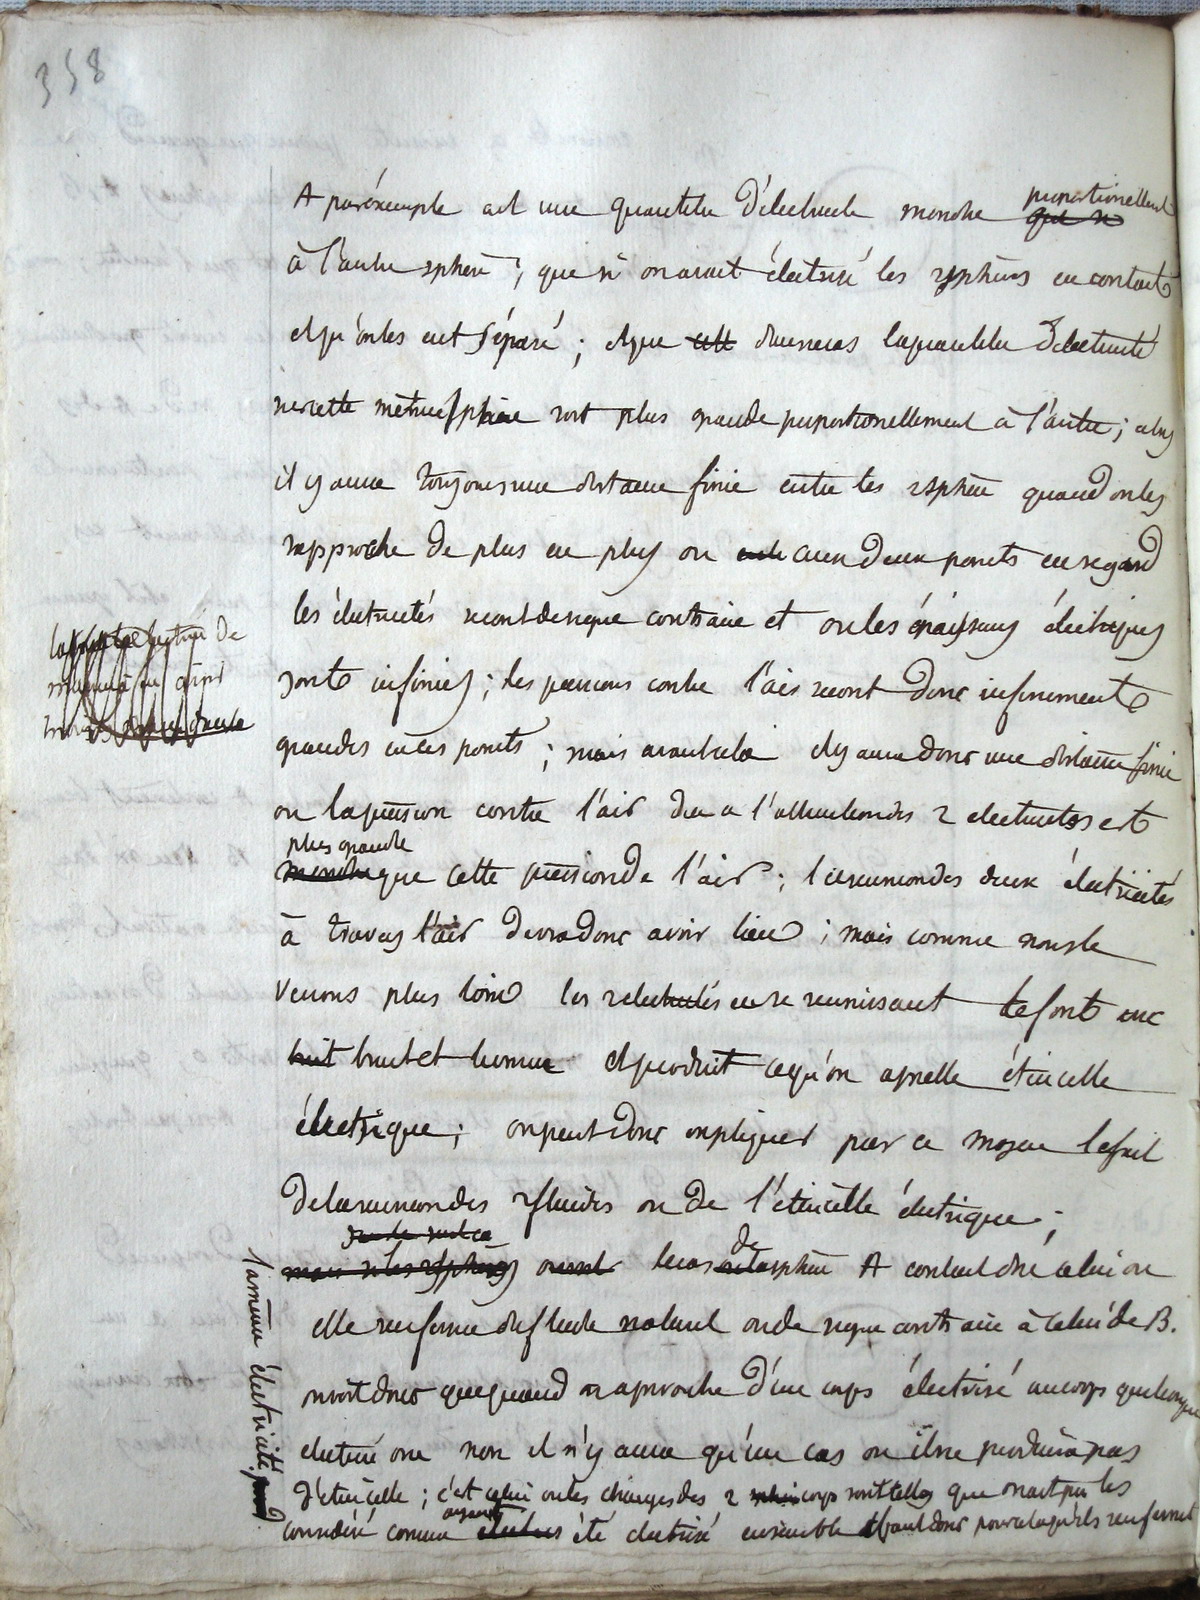 358
A par éxemple ait une quantité d'électricité moindre proportionellement
à l'autre sphère ; que si on avait électrisé les 2 sphères en contact
et qu'on les eut séparé ; et que dans ce cas la quantité d'électricité
de cette même sphère soit plus grande proportionellement à l'autre ; alors
il y aura toujours une distance finie entre les 2 sphère quand on les
rapproche de plus en plus ou aux deux points en regard
les électricités seront de signe contraire et ou les épaisseurs électriques
sont infinies ; les pressions contre l'air seront donc infiniment
grandes en ces points ; mais avant cela il y aura donc une distance finie
ou la pression contre l'air due a l'attraction des 2 electricités est
plus grande
que cette pression de l'air ; la reunion des deux électricités
à travers l'air devra donc avoir lieu ; mais comme nous le
verrons plus loin les 2 électricités en se reunissant le font avec
bruit et lumière et produit ce qu'on apelle étincelle
électrique ; on peut donc expliquer par ce moyen le fait
de la reunion des 2 fluides ou de l'étincelle électrique ;
le cas de la sphère A contient donc celui ou
elle renferme du fluide naturel ou de signe contraire à celui de B.
on voit donc que quand on approche d'un corps électrisé un corps quelconque
électrisé ou non il n'y aura qu'un cas ou il ne produira pas
d'étincelle ; c'est celui ou les charges des 2 corps sont telles que on ait pu les
considéré comme ayant été electrisé ensemble il faut donc pour cela qu'ils renferment
la même électricité.